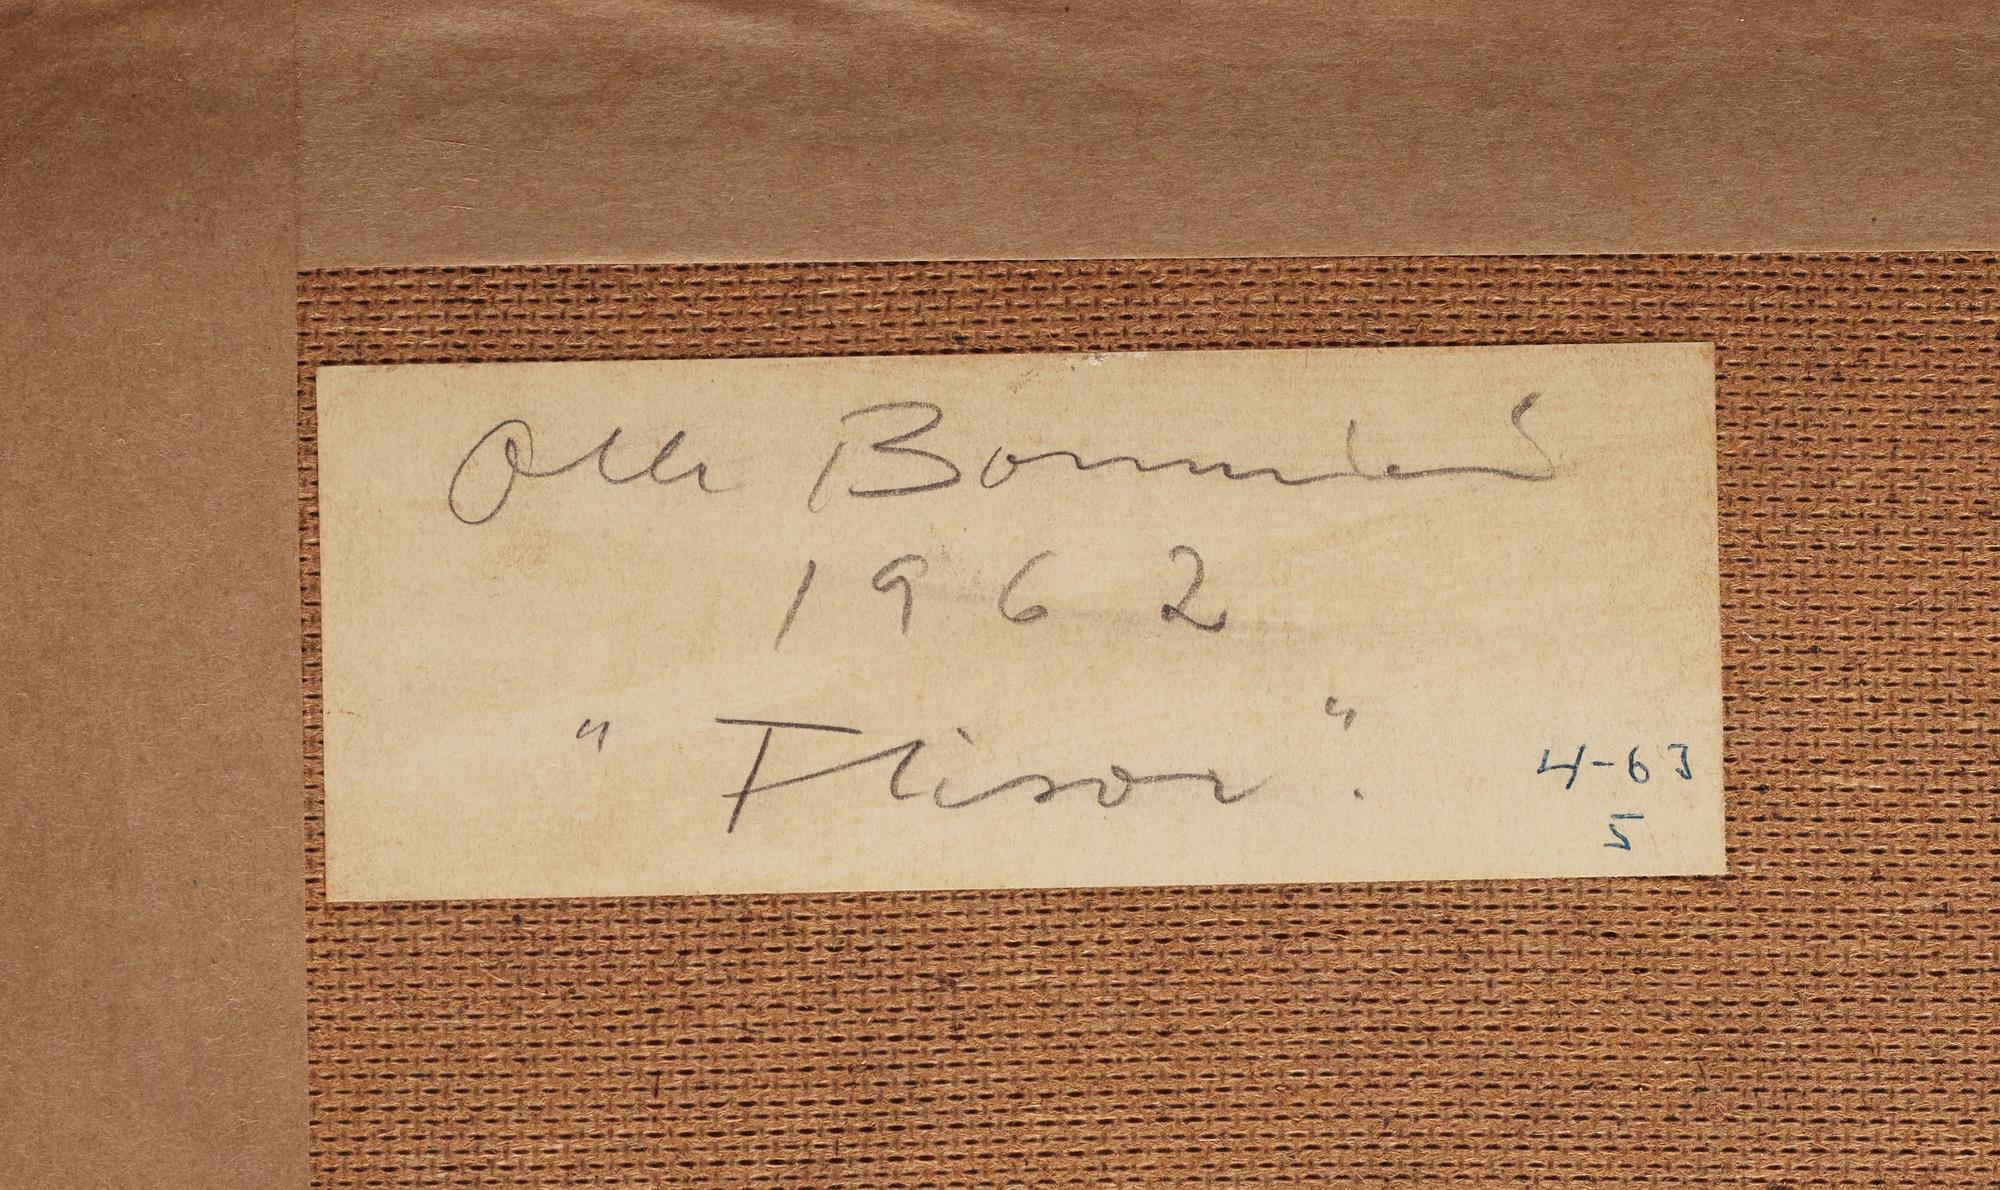 Olle Bonniér
1962
"Plisor".
4-63
5